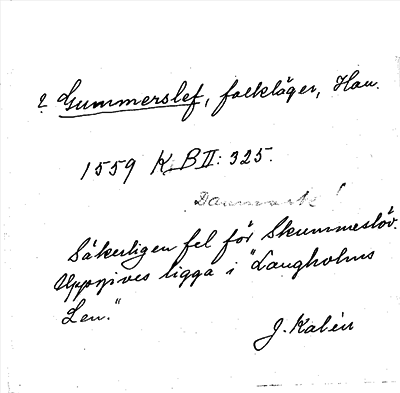 ? Gummerslef, folkläger, Hau.
1559 K. B II: 325.
Danmark!
Säkerligen fel för Skummeslöv.
Uppgives ligga i "Laugholms
Len."
J. Kalén